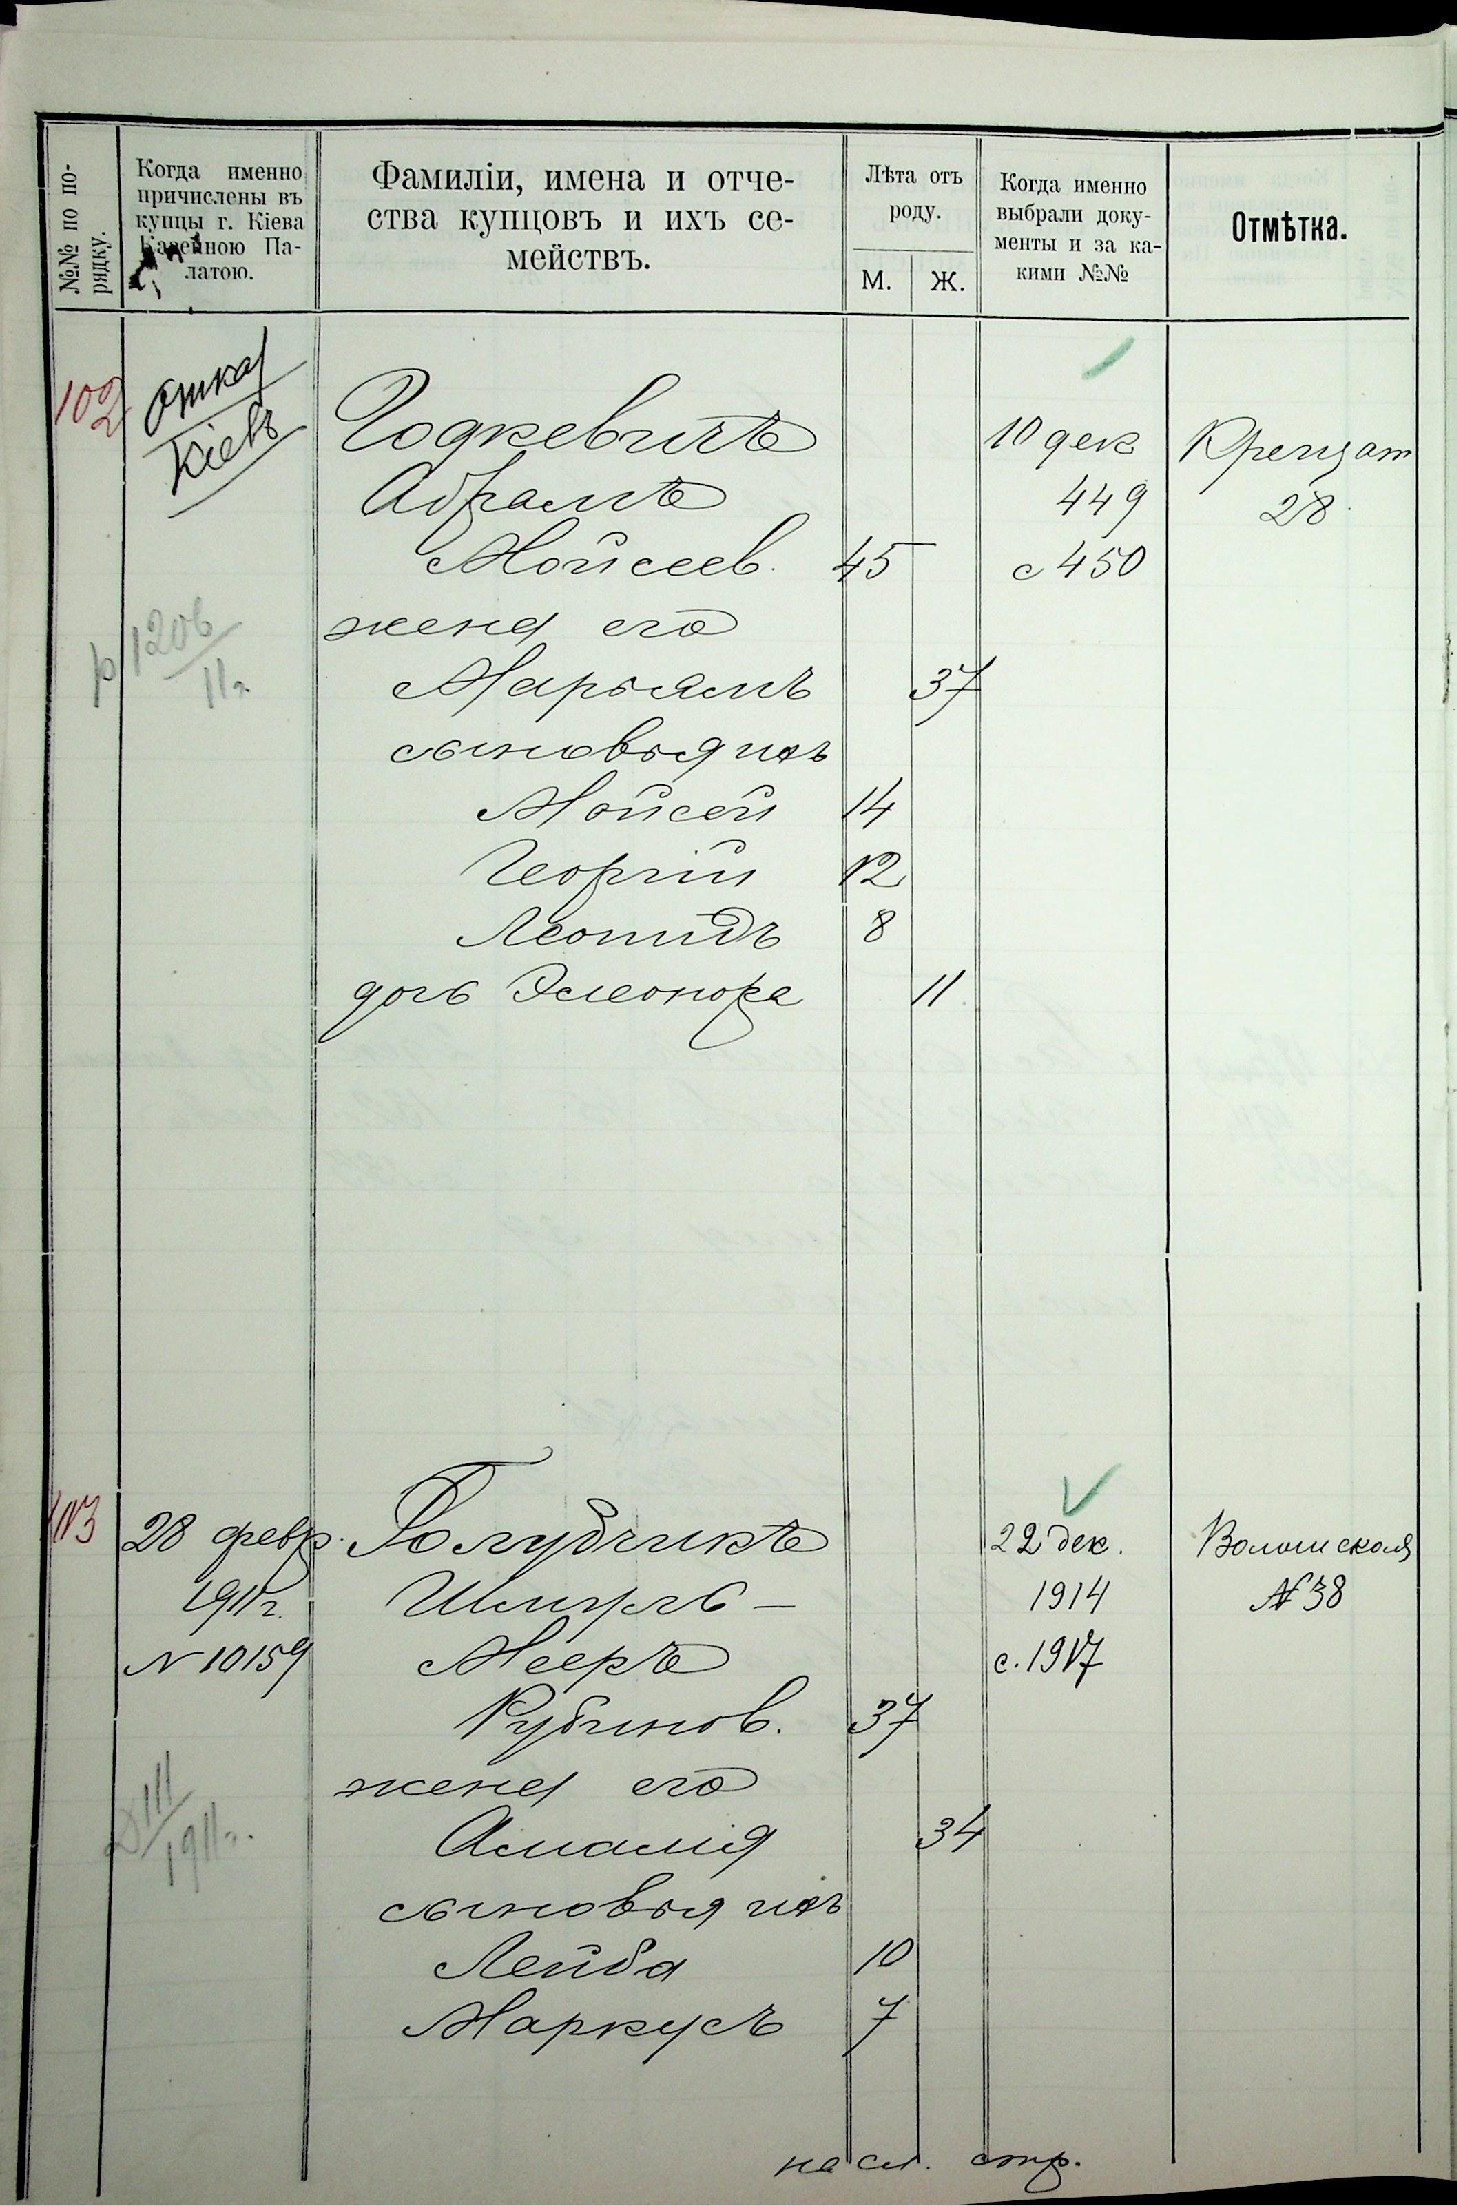 №№ по по-
рядку.
Когда именно
причислены въ
купцы г. Кіева
Казенною Па-
латою.
Фамиліи, имена и отче-
ства купцовъ и ихъ се-
мействъ.
Лѣта отъ
роду.
М. Ж.
Когда именно
выбрали доку-
менты и за ка-
кими №№
Отмѣтка.
102
Кіевъ
Годкевичъ
Абрамъ
Мойсеев. 45
жена его
Марьямъ 37
сыновья ихъ
Мойсей 14
Георгій 12
Леонидъ 8
дочь Элеонора 11
10 дек
449
с 450
Крещат
28
р 1206
11г.
28 февр.
1911г.
N 10159
Голубчикъ
Шмуль –
Мееръ
Рубинов. 37
жена его
Амалия 34
сыновья ихъ
Лейба 10
Маркусъ 7
22 дек.
1914
с. 1917
№ 38
III
1911г.
на сл. стр.